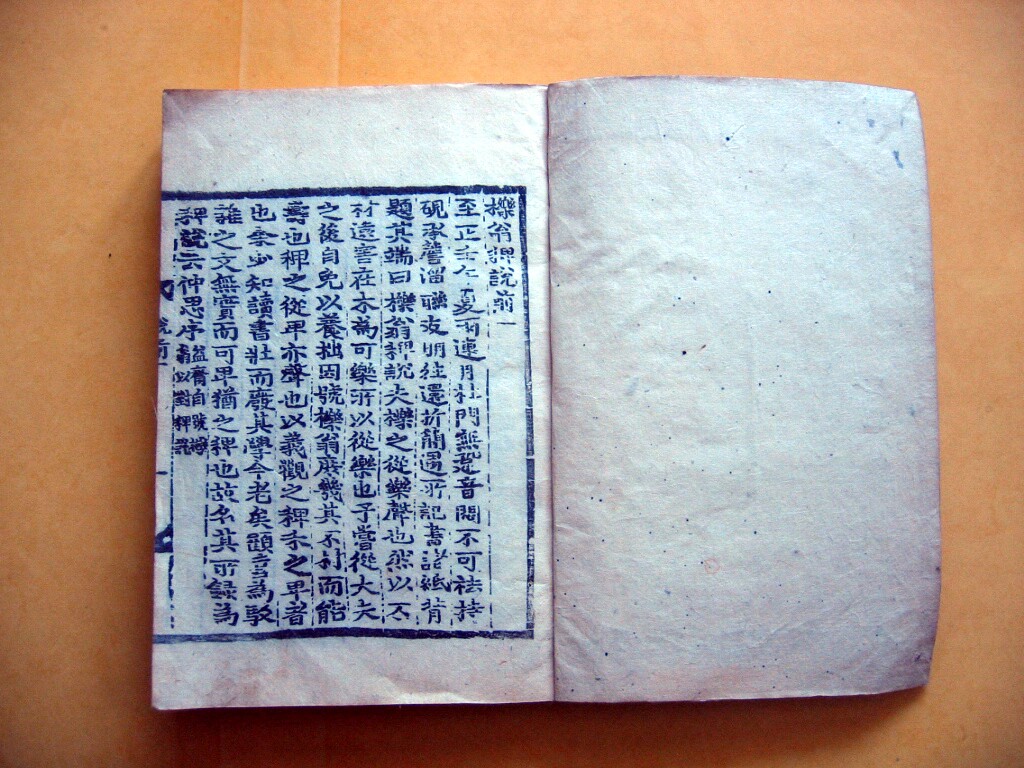 櫟翁稗說前一
至正壬午夏雨連月杜門無跫音悶不可袪持
硯承簷溜聯友朋往還折簡遇所記書諸紙背
題其端曰櫟翁稗說夫櫟之從樂聲也然以不
材遠害在木為可樂所以從樂也予嘗從大夫
之後自免以養拙因號櫟翁庶幾其不材而能
壽也稗之從卑亦聲也以義觀之稗禾之卑者
也余少知讀書壯而廢其學今老矣顧喜為駁
雜之文無實而可卑猶之稗也故名其所錄為
稗說云仲思序
益齋自號櫟
說前一